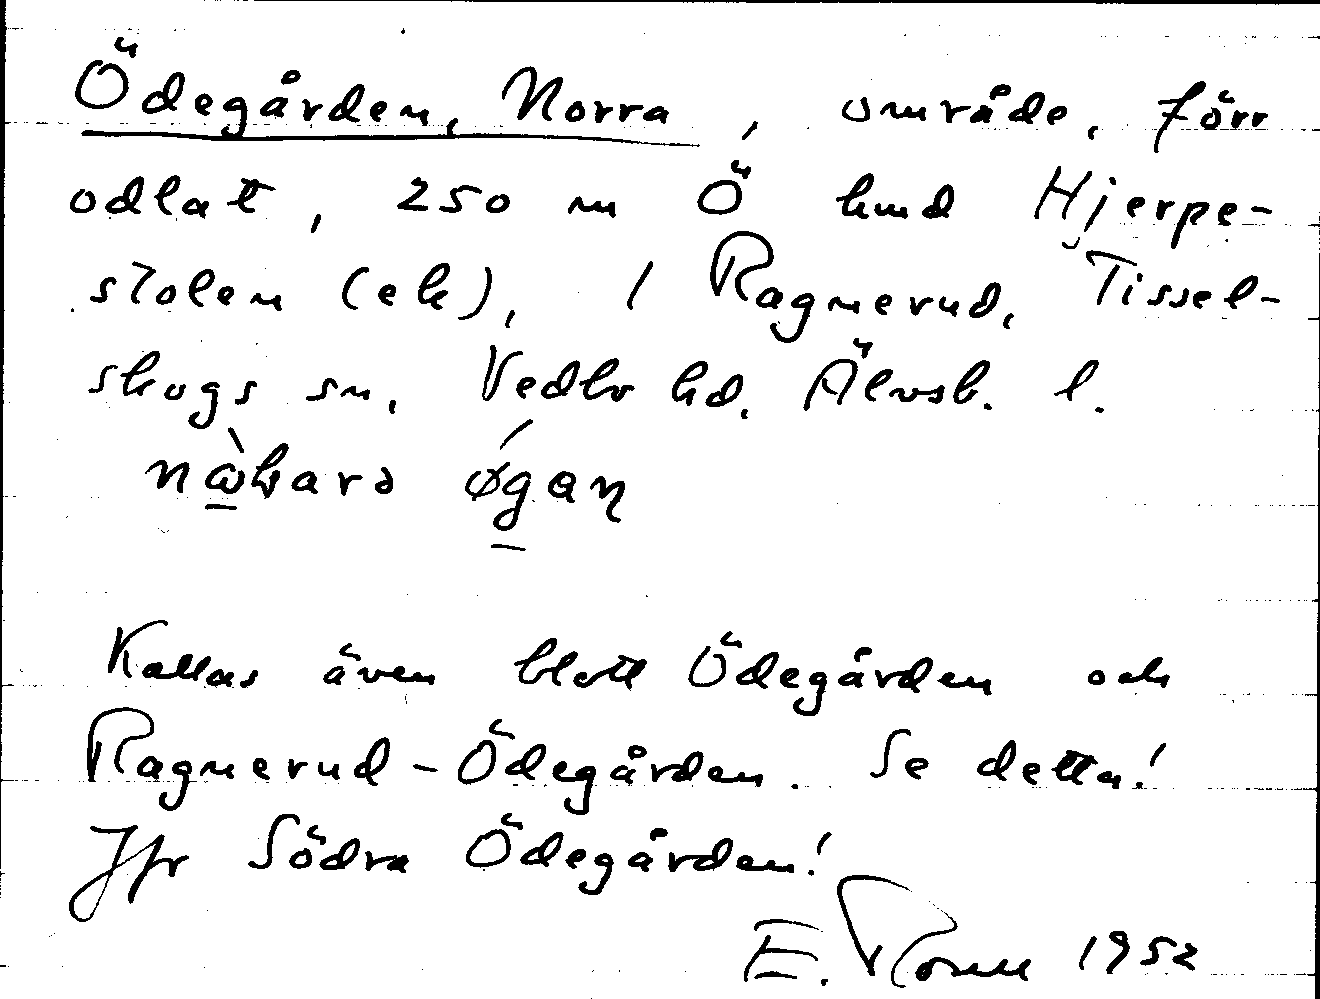 Ödegården, Norra, område, förr
odlat, 250 m Ö hmd Hjerpe-
stolen (ek), i Ragnerud, Tissel-
skogs sn, Vedbo hd. Älvsb. l.
øgan
Kallas även blott Ödegården och
Ragnerud-Ödegården. Se detta!
Jfr Södra Ödegården!
E. 1952